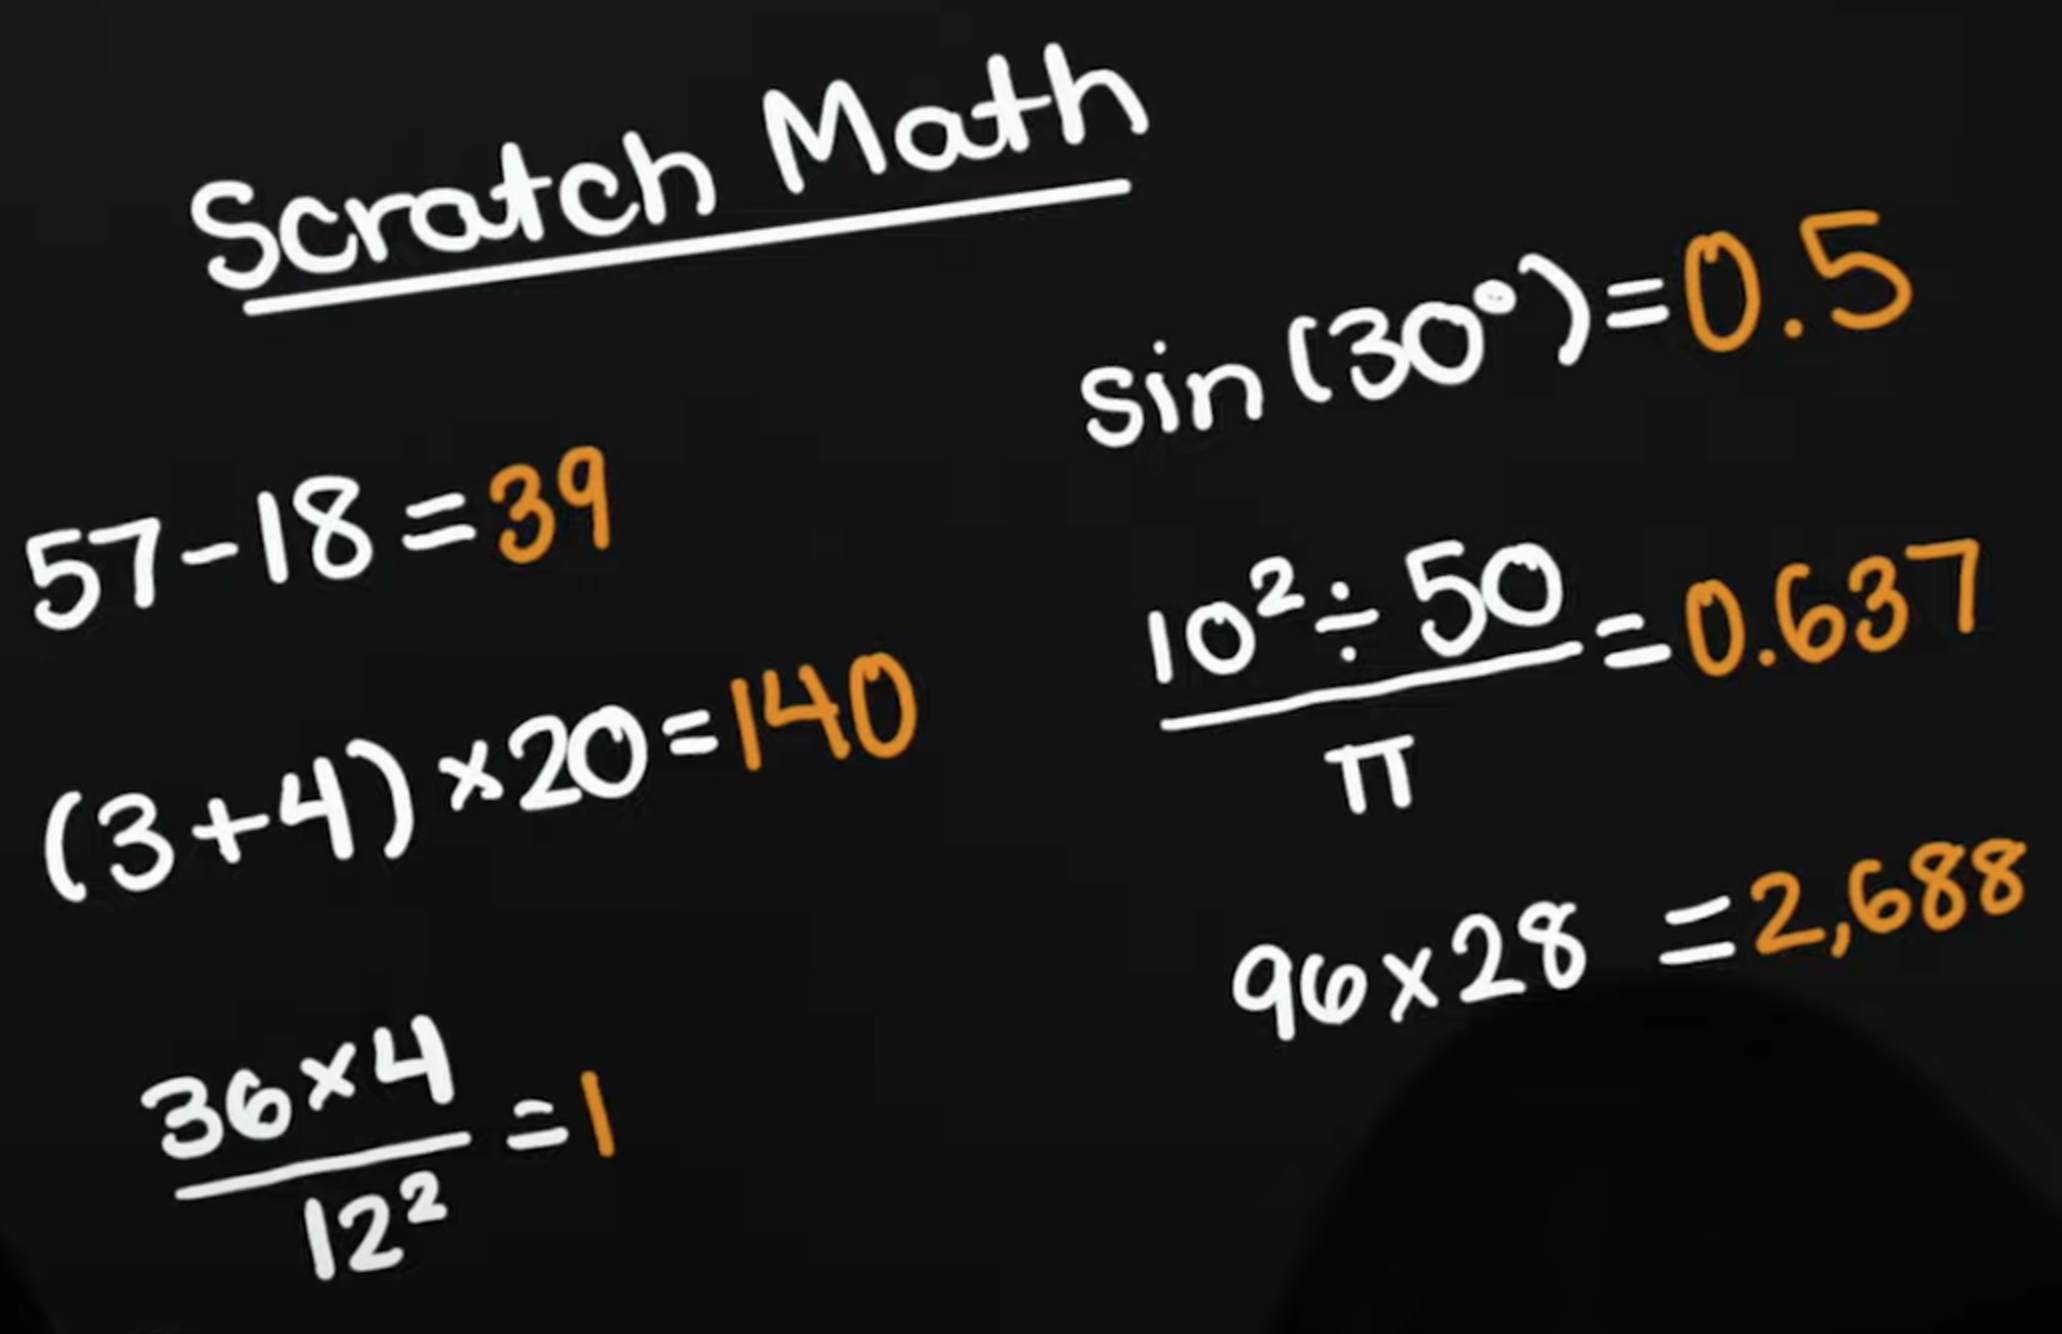 Scratch Math
57-18=39
(3+4)×20=140
36×4
12²
=1
sin(30°)=0.5
10²÷50
π
=0.637
96×28 =2,688